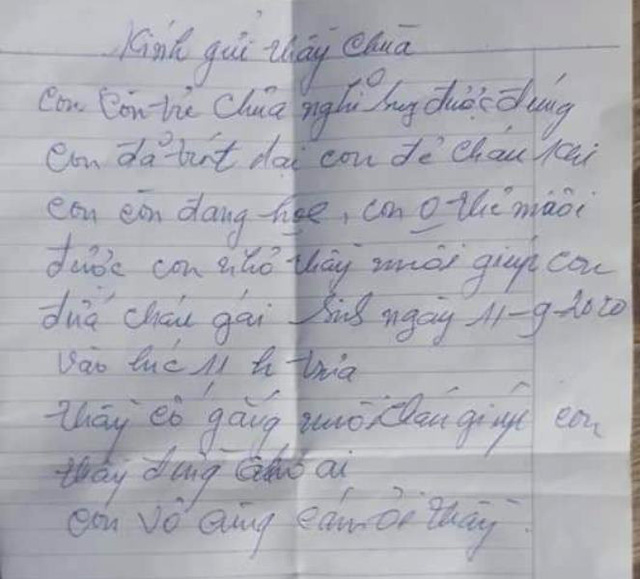 Kính gửi thầy chùa
con còn trẻ chưa nghĩ được đúng
con đã trót dại con đẻ cháu khi
con còn đang học, con 0 thể nuôi
được con nhờ thầy nuôi giúp con
đứa cháu gái sinh ngày 11-9-2020
vào lúc 11 h trưa
thầy cố gắng nuôi cháu giúp con
thầy đừng cho ai
con vô cùng cảm ơn thầy.